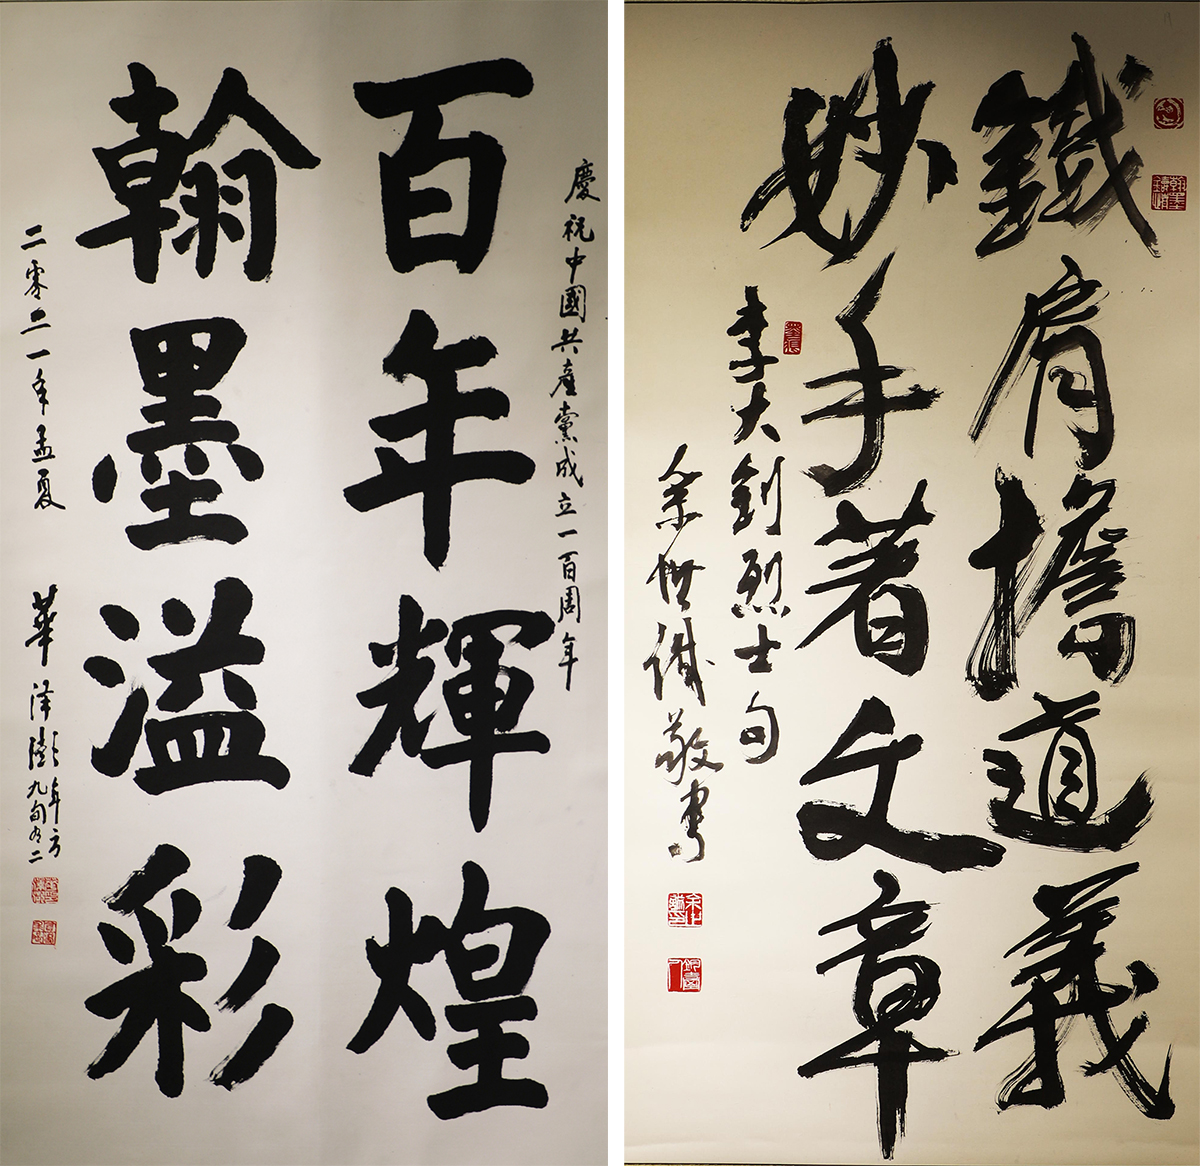 慶祝中國共產黨成立一百周年
百年輝煌
翰墨溢彩
二零二一年孟夏
華澤澎年方九旬有二
鐵肩擔道義
妙手著文章
李大釗烈士句
余世誠敬書